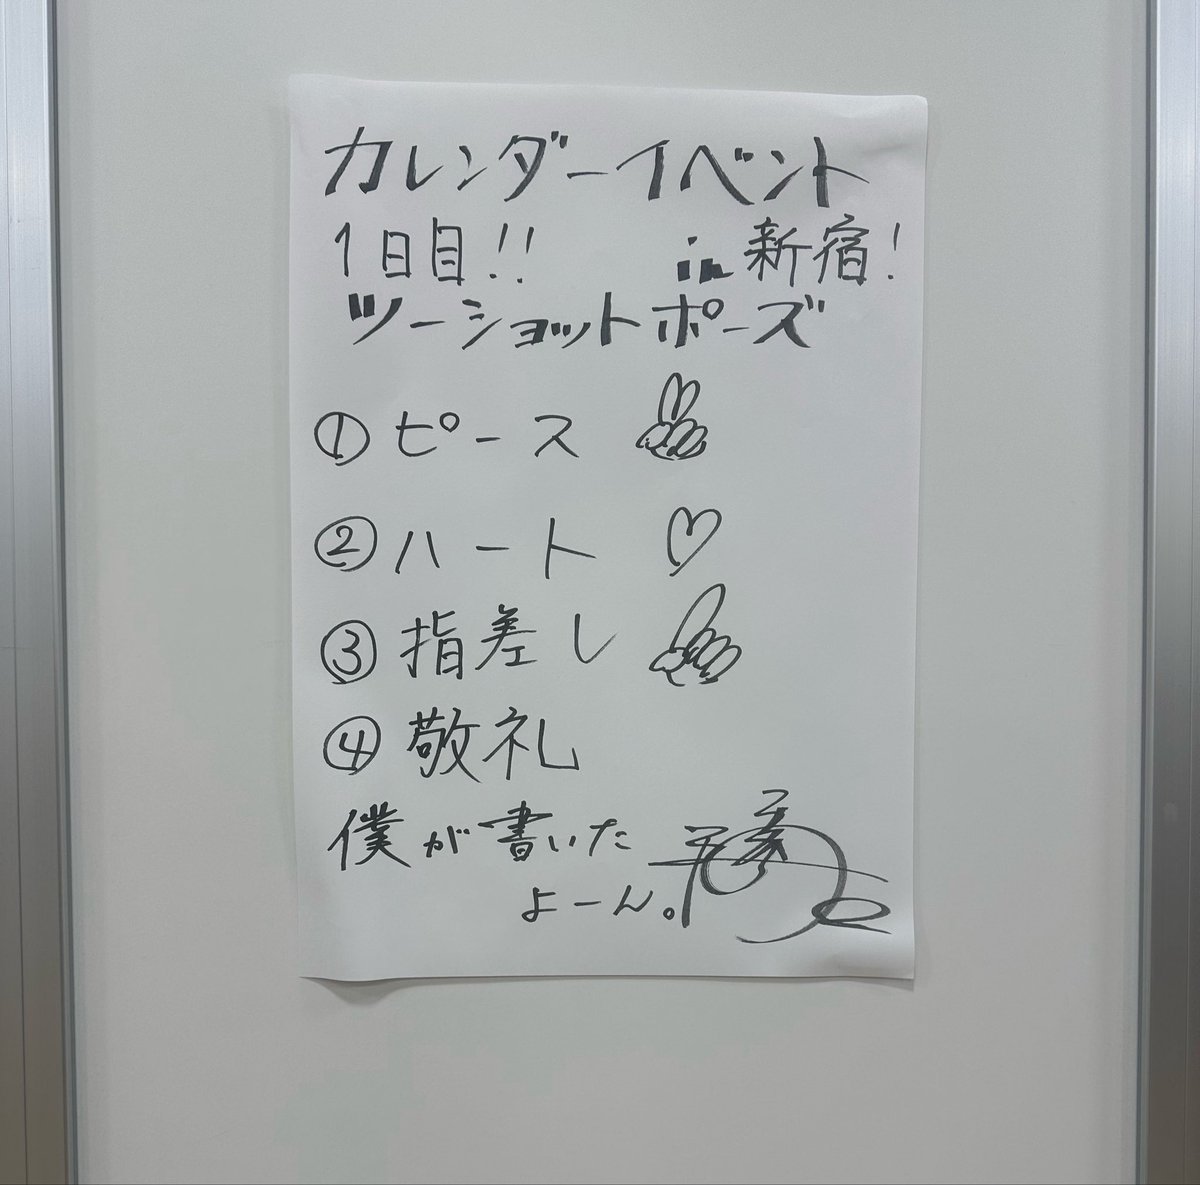 カレンダーイベント
1日目!! in新宿!
ツーショットポーズ
①ピース
②ハート
③指差し
④敬礼
僕が書いた
よーん。